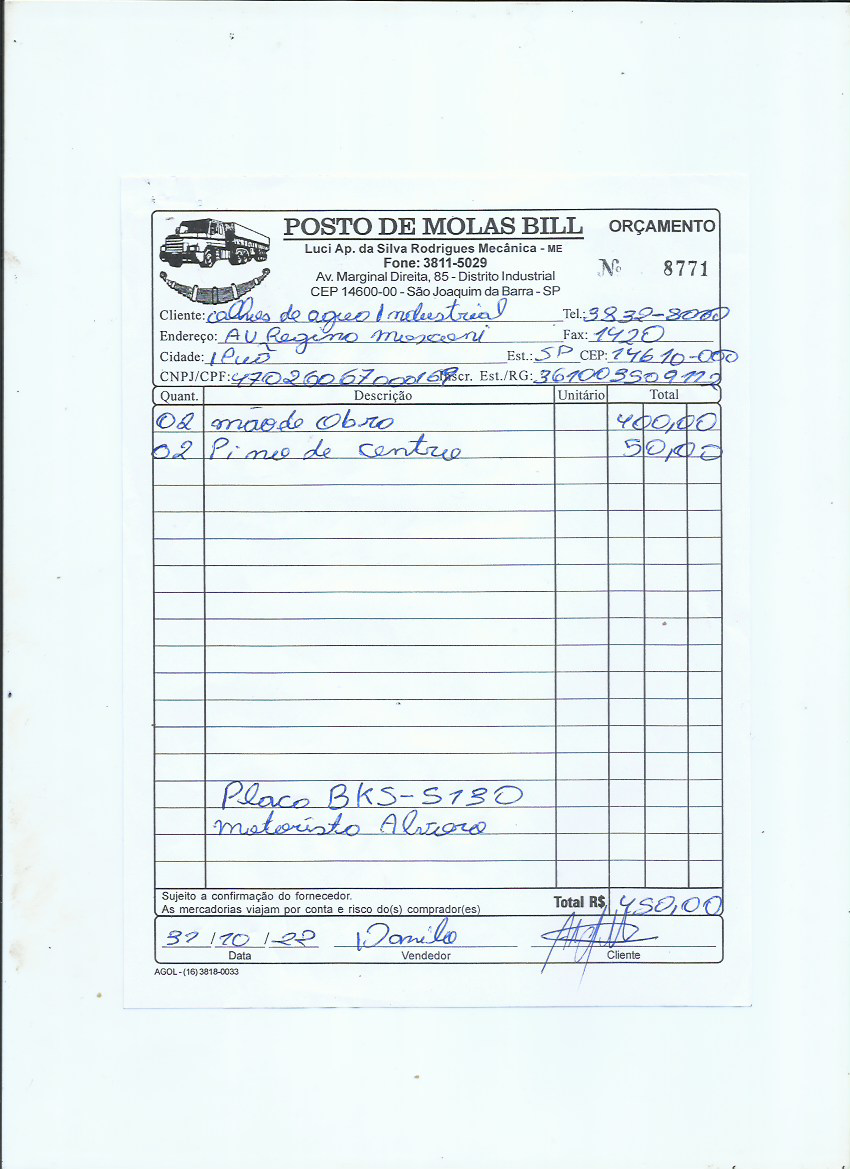 POSTO DE MOLAS BILL ORÇAMENTO
Luci Ap. da Silva Rodrigues Mecânica - ME
Fone: 3811-5029
Nº 8771
Av. Marginal Direita, 85 - Distrito Industrial
CEP 14600-00 - São Joaquim da Barra - SP
Cliente: calhes de agua Industrial Tel.: 3832-8000
Endereço: AV Regino Fax: 1420
Cidade: IPuã Est.: SP CEP: 14610-000
CNPJ/CPF: Inscr. Est./RG:
Quant. Descrição Unitário Total
02 mão de Obra 400,00
02 Pino de centro 50,00
Placa BKS-5130
motorista Alvaro
Sujeito a confirmação do fornecedor.
As mercadorias viajam por conta e risco do(s) comprador(es)
Total R$ 450,00
31/10/22 Danilo
Data Vendedor Cliente
AGOL - (16) 3818-0033